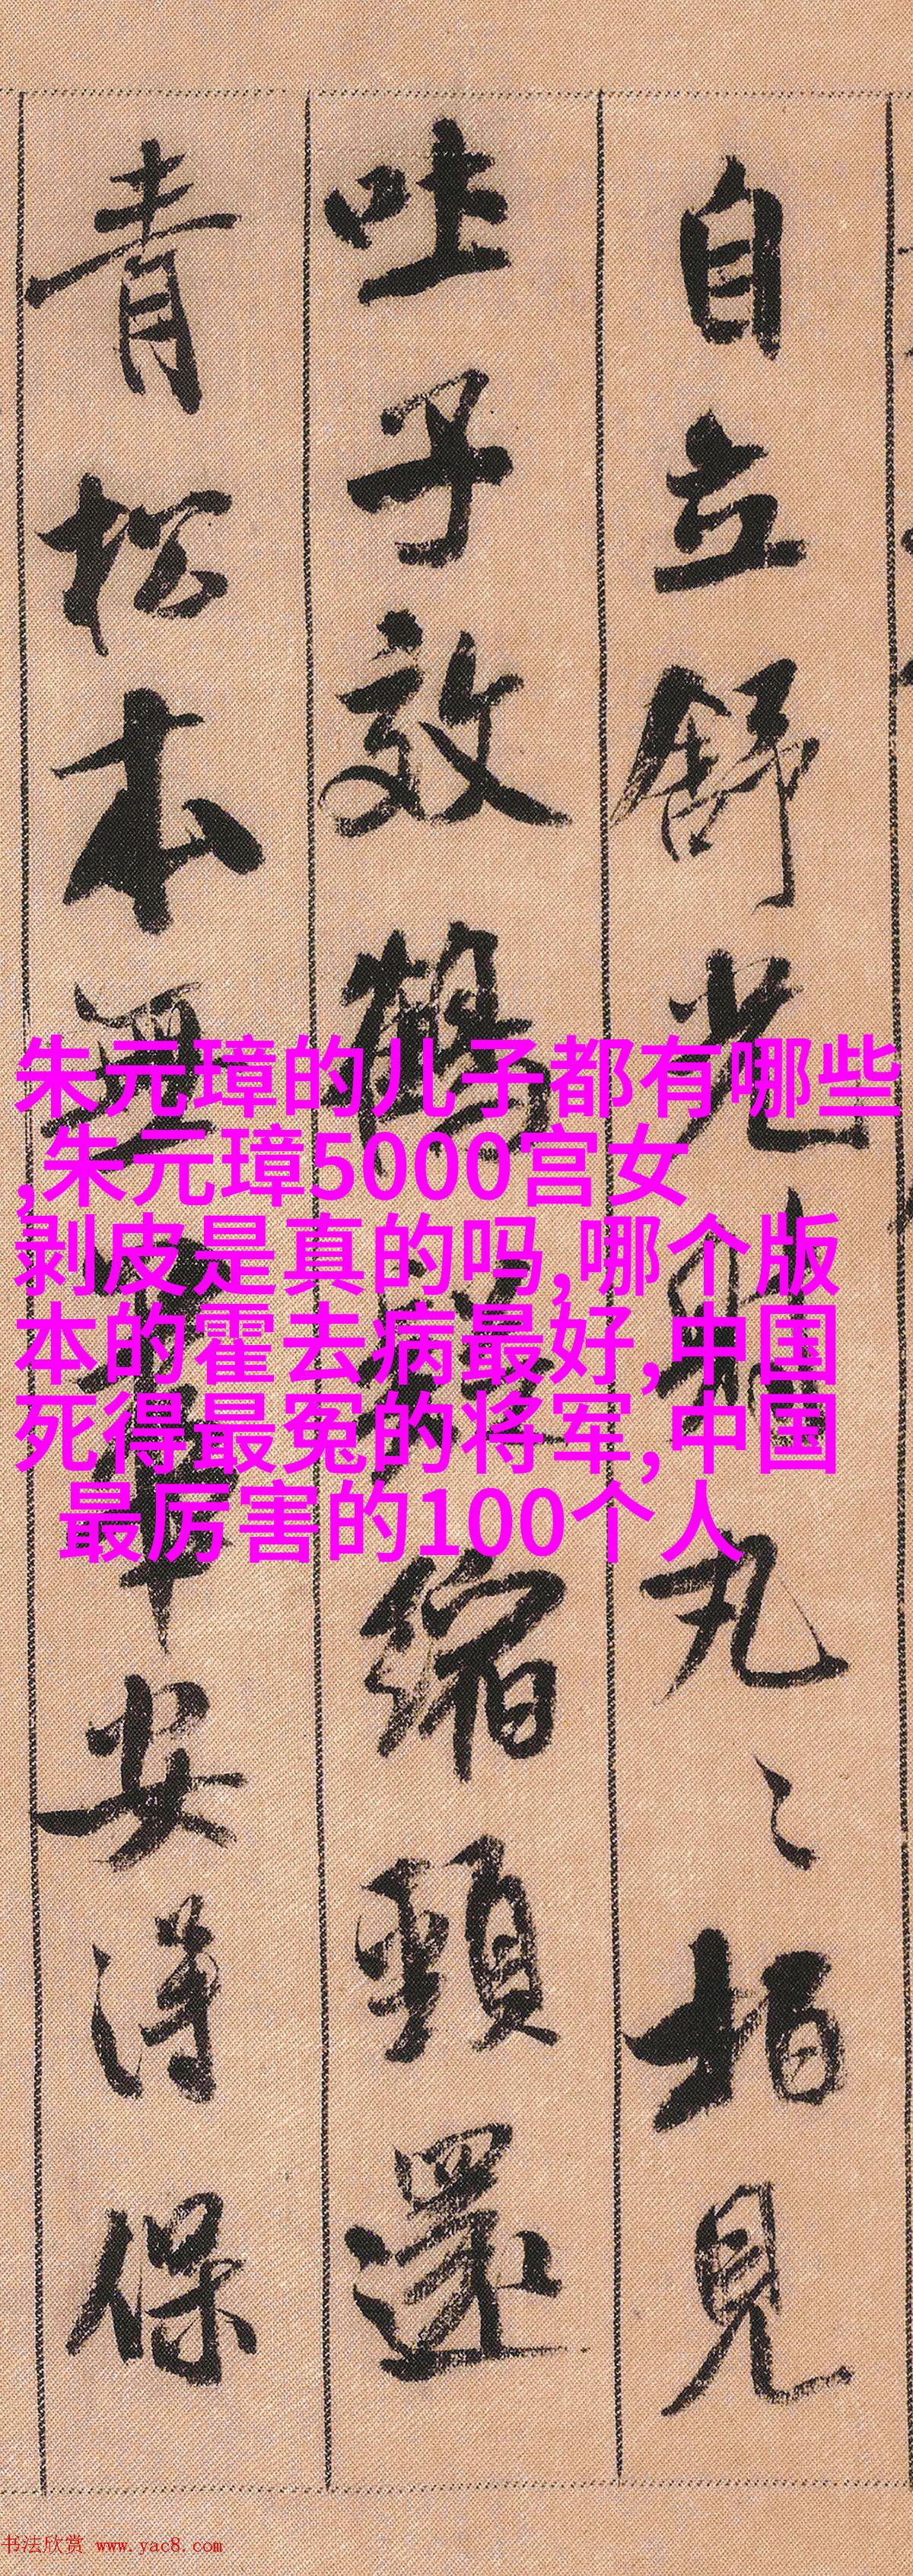 自立舒光照丸〻柏見
吐子效鶴縮頸還
青松本無華安得保
朱元璋的儿子都有哪些
,朱元璋5000宫女
剥皮是真的吗,哪个版
本的霍去病最好,中国
死得最冤的将军,中国
最厉害的100个人
书法欣赏 www.yac8.com